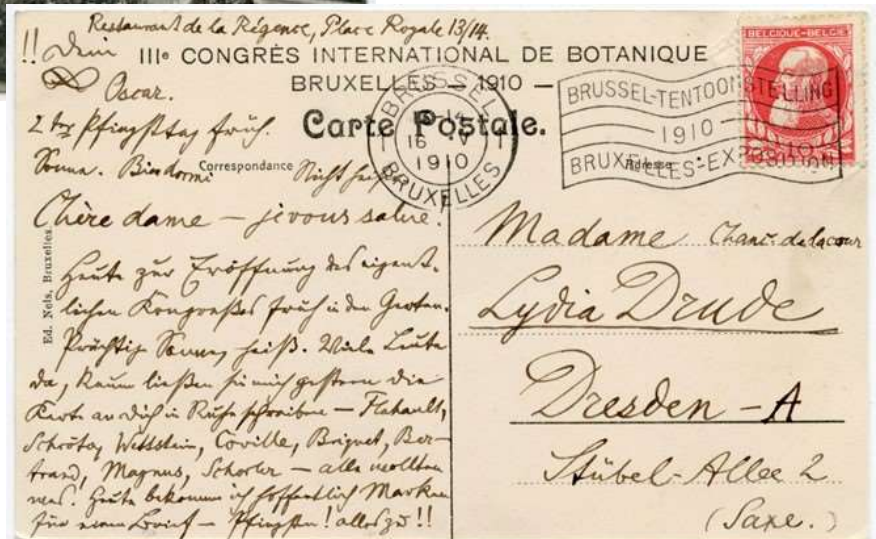 Restaurant de la Régence, Place Royale 13/14.
!! Dein
Oscar.
IIIᵉ CONGRÈS INTERNATIONAL DE BOTANIQUE
BRUXELLES — 1910 —
Carte Postale.
BRUSSEL
16 V
1910
BRUXELLES
BRUSSEL-TENTOONSTELLING
1910
BRUXELLES-EXPOSITION
BELGIQUE-BELGIË
10
2ter Pfingsttag früh.
Sonne. Bien dormi Nicht heiß
Correspondance
Adresse
Chère dame — je vous salue.
Heute zur Eröffnung des eigent-
lichen Kongreßes früh in den Garten.
Prächtige Sonne, heiß. Viele Leute
da, kaum ließen sie mich gestern die
Karte an Dich in Ruhe schreiben — Flahault,
Schröter, Wettstein, Coville, Briquet, Ber-
trand, Magnus, Schorler — alle wollten
was. Heute bekomm ich hoffentlich Marken
für einen Brief — Pfingsten! alles zu!!
Ed. Nels, Bruxelles.
Madame
Lydia Drude
Dresden - A
Stübel-Allee 2
(Saxe.)